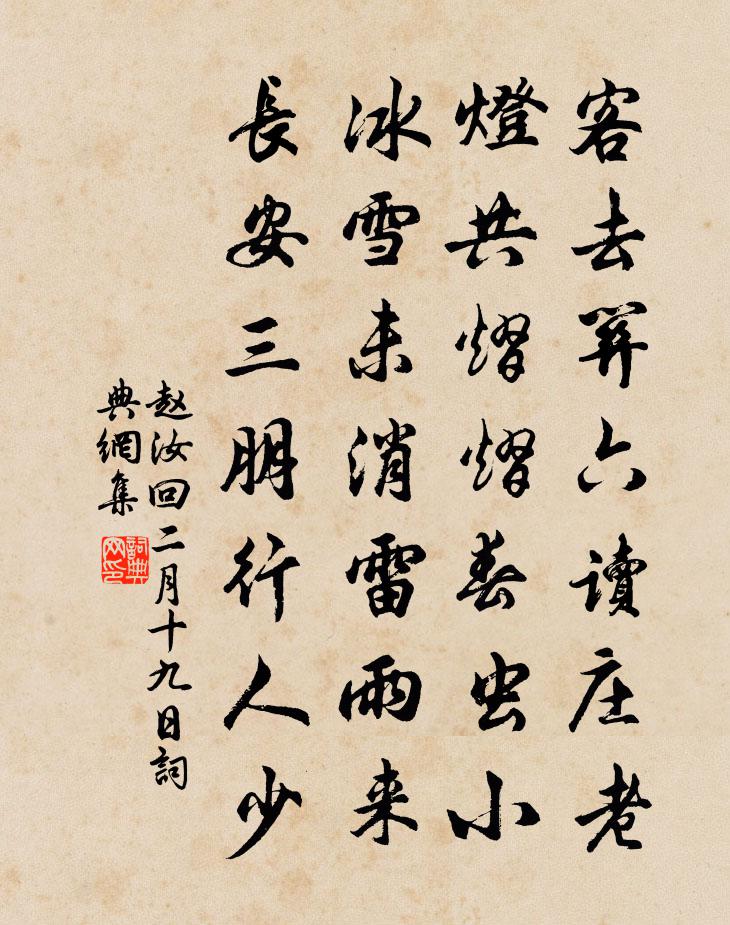 客去關門讀庄老
燈共熠熠春虫小
冰雪未消雷雨来
長安三朋行人少
赵汝回二月十九日詞
典網集
詞典
网印